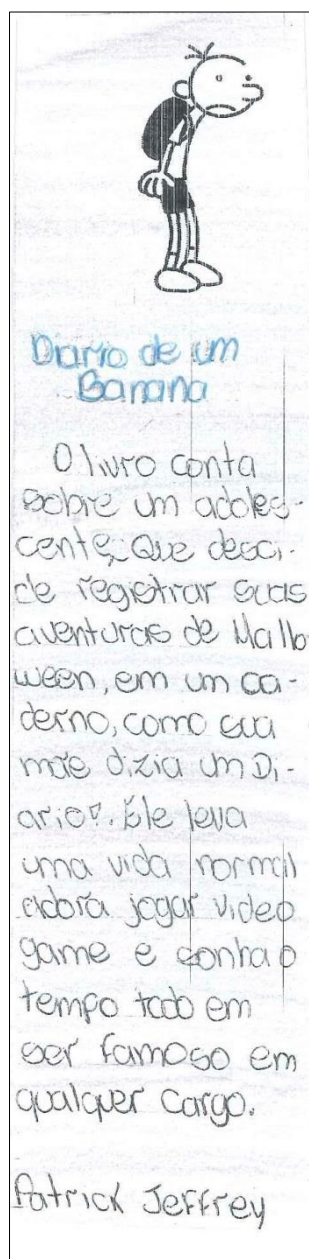 Diario de um
Banana
O livro conta
sobre um adoles-
cente, Que desci-
de registrar suas
aventuras de Hallo
ween, em um ca-
derno, como sua
mãe dizia um Di-
ario". Ele leva
uma vida normal
adora jogar video
game e sonha o
tempo todo em
ser famoso em
qualquer cargo.
Patrick Jeffrey